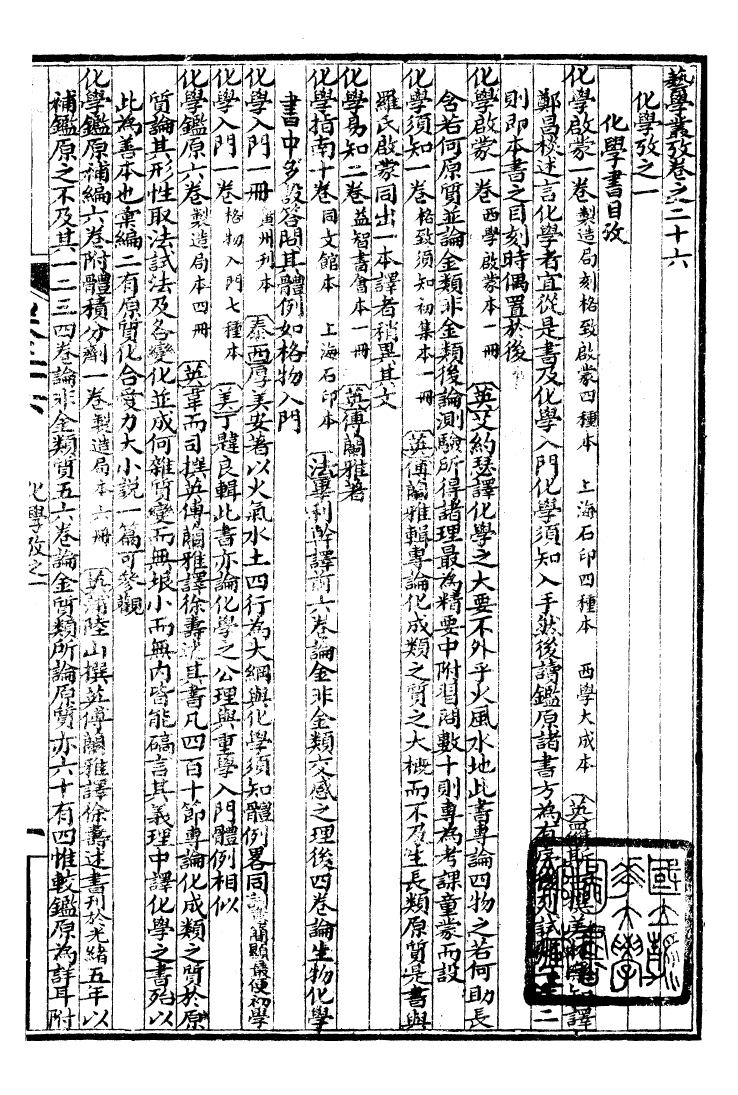 藝學叢攷卷之二十六
化學攷之一
化學書目攷
化學啟蒙一卷 製造局刻格致啟蒙四種本 上海石印四種本 西學大成本 英羅斯 撰美林 知譯
鄭昌棪述言化學者宜從是書及化學入門化學須知入手然後讀鑑原諸書方為有序 列試 二
則即本書之目刻時偶置於後
化學啟蒙一卷 西學啟蒙本一冊 英艾約瑟譯化學之大要不外乎火風水地此書專論四物之若何助長
含若何原質並論金類非金類後論測驗所得諸理最為精要中附習問數十則專為考課童蒙而設
化學須知一卷 格致須知初集本一冊 英傅蘭雅輯專論化成類之質之大概而不及生長類原質是書與
羅氏啟蒙同出一本譯者稍異其文
化學易知二卷 益智書會本一冊 英傅蘭雅著
化學指南十卷 同文館本 上海石印本 法畢利幹譯前六卷論金非金類交感之理後四卷論生物化學
書中多設答問其體例如格物入門
化學入門一冊 廣州刊本 泰西厚美安著以火氣水土四行為大綱與化學須知體例畧同 簡顯最便初學
化學入門一卷 格物入門七種本 美丁韙良輯此書亦論化學之公理與重學入門體例相似
化學鑑原六卷 製造局本四冊 英韋而司撰英傅蘭雅譯徐壽述其書凡四百十節專論化成類之質於原
質論其形性取法試法及各變化並成何雜質變而無垠小而無內皆能確言其義理中譯化學之書殆以
此為善本也彙編二有原質化合愛力大小說一篇可參觀
化學鑑原補編六卷附體積分劑一卷 製造局本六冊 英蒲陸山撰英傅蘭雅譯徐壽述書刊於光緒五年以
補鑑原之不及其一二三四卷論非金類質五六卷論金質類所論原質亦六十有四惟較鑑原為詳耳附
化學攷之一
一